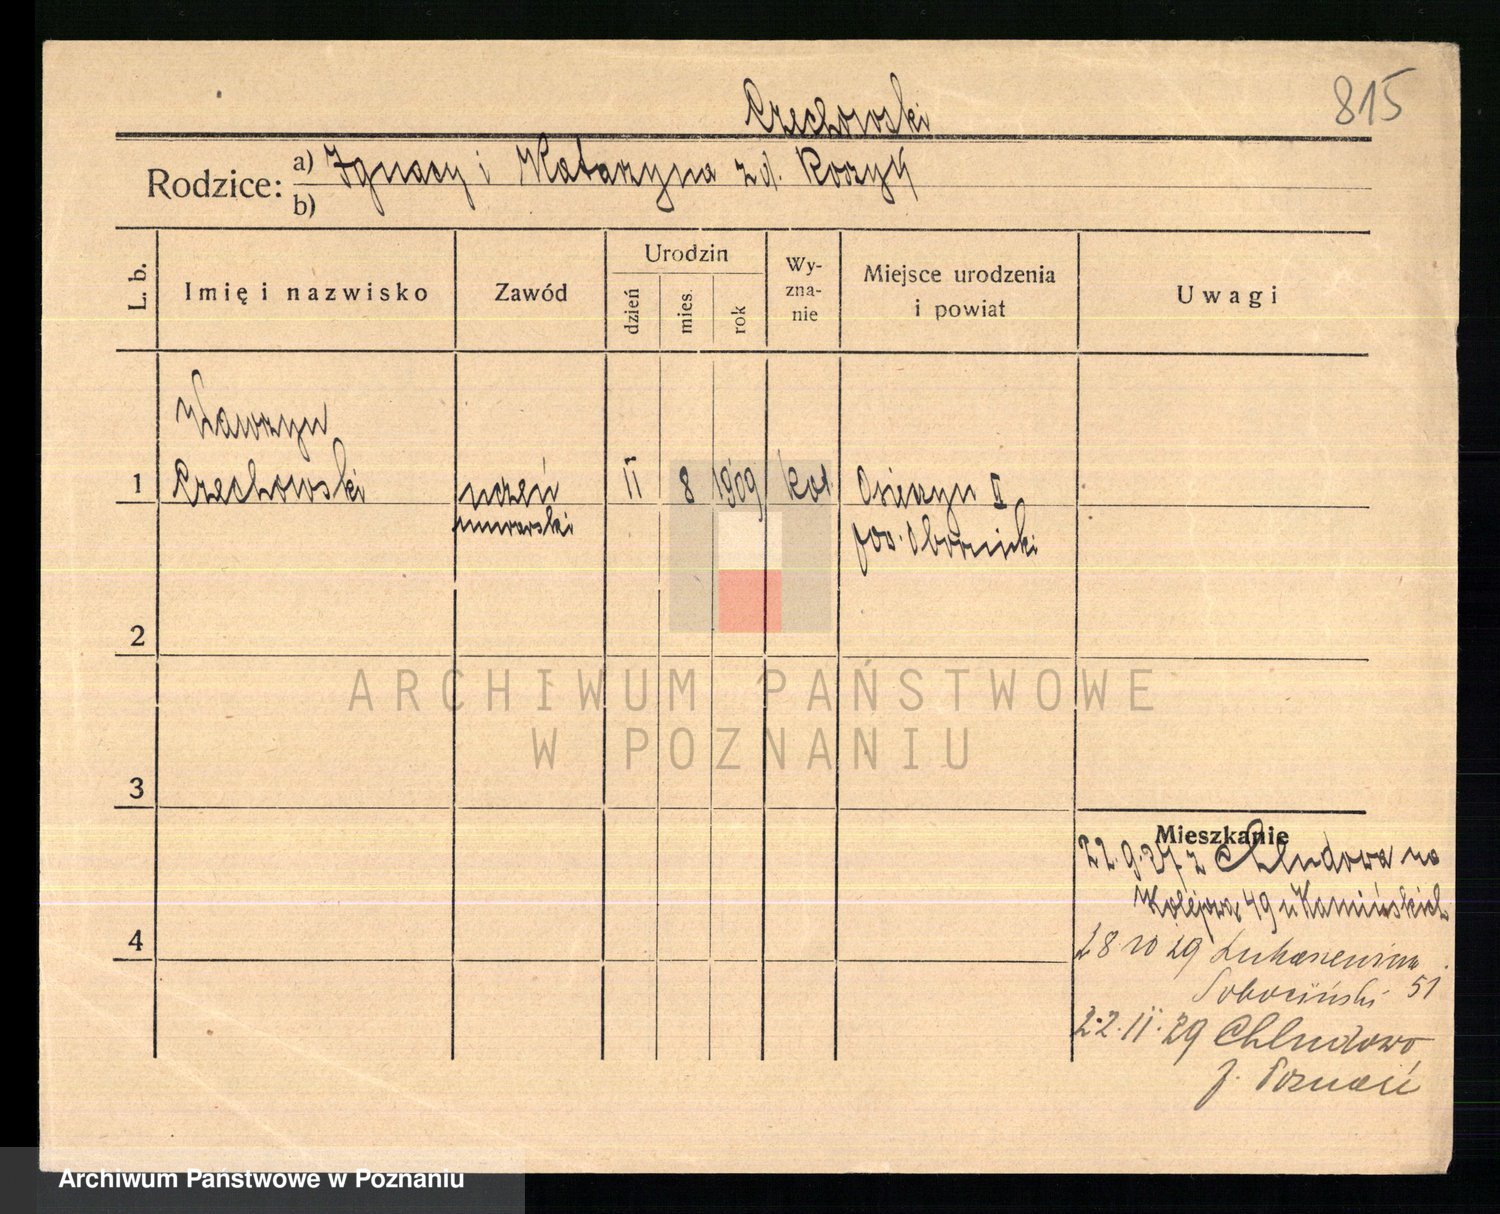 815
Czechowski
Rodzice: a) Ignacy i Katarzyna z d. Kozyk
b)
L. b. Imię i nazwisko Zawód Urodzin dzień mies. rok Wyznanie Miejsce urodzenia i powiat Uwagi
Wawrzyn
1 Czechowski uczeń 11 8 1909 kat Osieczyn
murarski pow. Obornicki
2
ARCHIWUM PAŃSTWOWE
W POZNANIU
3
Mieszkanie
22.9.27 z Chludowa na
Kolejowa 49 u Kamińskich
28 10 29 Łukaszewicza
Sobociński 51
22.11.29 Chludowo
p. Poznań
4
Archiwum Państwowe w Poznaniu